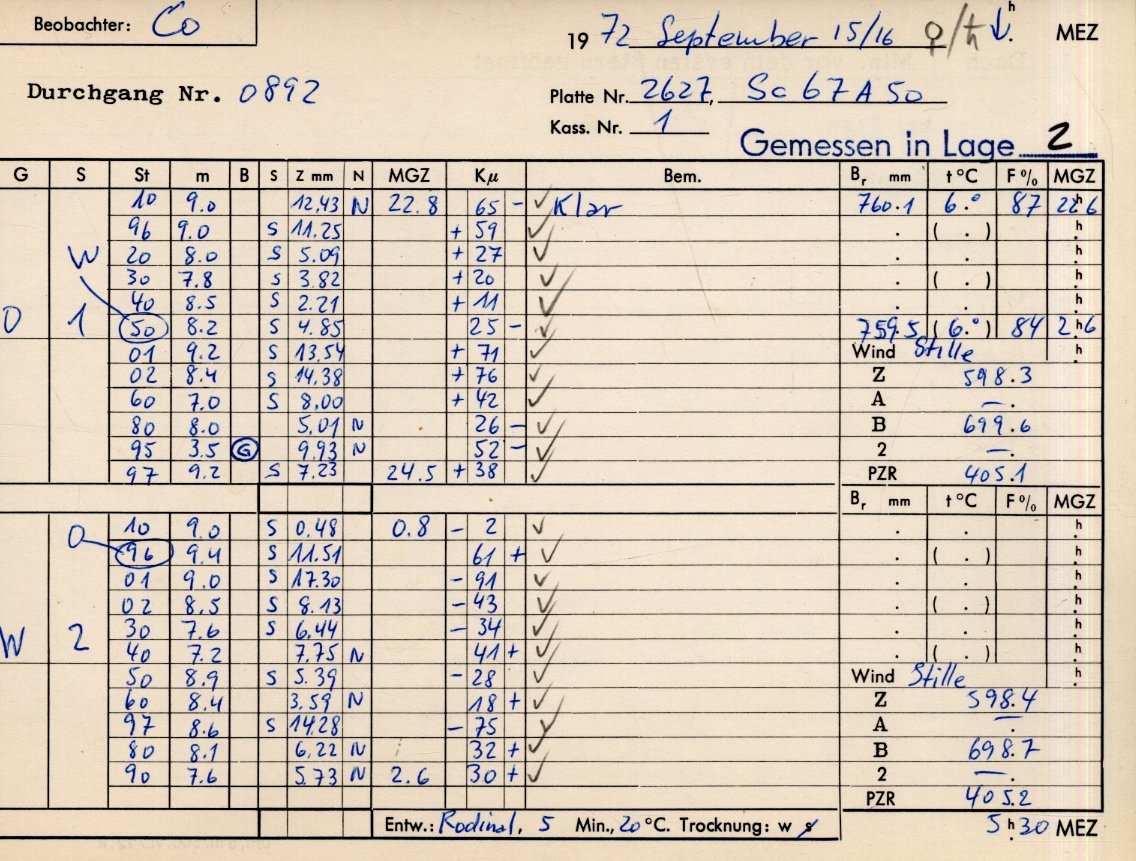 Beobachter: Co
1972 September 15/16 ♀/♄ ↓. h MEZ
Durchgang Nr. 0892
Platte Nr. 2627, Sc 67 A 50
Kass. Nr. 1
Gemessen in Lage 2
G S St m B S Z mm N MGZ Kμ Bem. Br mm t°C F% MGZ
10 9.0 12,43 N 22.8 65 - ✓ Klar 760.1 6.° 87 22h6
96 9.0 S 11.25 + 59 ✓ . ( . ) h
W 20 8.0 S 5.09 + 27 ✓ . . h
30 7.8 S 3.82 + 20 ✓ . ( . ) h
40 8.5 S 2.21 + 11 ✓ . . h
O 1 50 8.2 S 4.85 25 - ✓ 759.5 (6.°) 84 2h6
01 9.2 S 13,54 + 71 ✓ Wind Stille h
02 8.4 S 14.38 + 76 ✓ Z 598.3
60 7.0 S 8.00 + 42 ✓ A —.
80 8.0 5,01 N 26 - ✓ B 699.6
95 3.5 G 9.93 N 52 - ✓ 2 —.
97 9.2 S 7.23 24.5 + 38 ✓ PZR 405.1
Br mm t°C F% MGZ
10 9.0 S 0.48 0.8 - 2 ✓ . . h
O 96 9.4 S 11.51 61 + ✓ . ( . ) h
01 9.0 S 17.30 - 91 ✓ . . h
02 8.5 S 8.13 - 43 ✓ . ( . ) h
30 7.6 S 6.44 - 34 ✓ . . h
W 2 40 7.2 7.75 N 41 + ✓ . ( . ) h
50 8.9 S 5.39 - 28 ✓ Wind Stille h
60 8.4 3.59 N 18 + ✓ Z 598.4
97 8.6 S 14.28 - 75 ✓ A —.
80 8.1 6.22 N 32 + ✓ B 698.7
90 7.6 5.73 N 2.6 30 + ✓ 2 —.
PZR 405.2
Entw.: Rodinal, 5 Min., 20°C. Trocknung: w s 5h30 MEZ